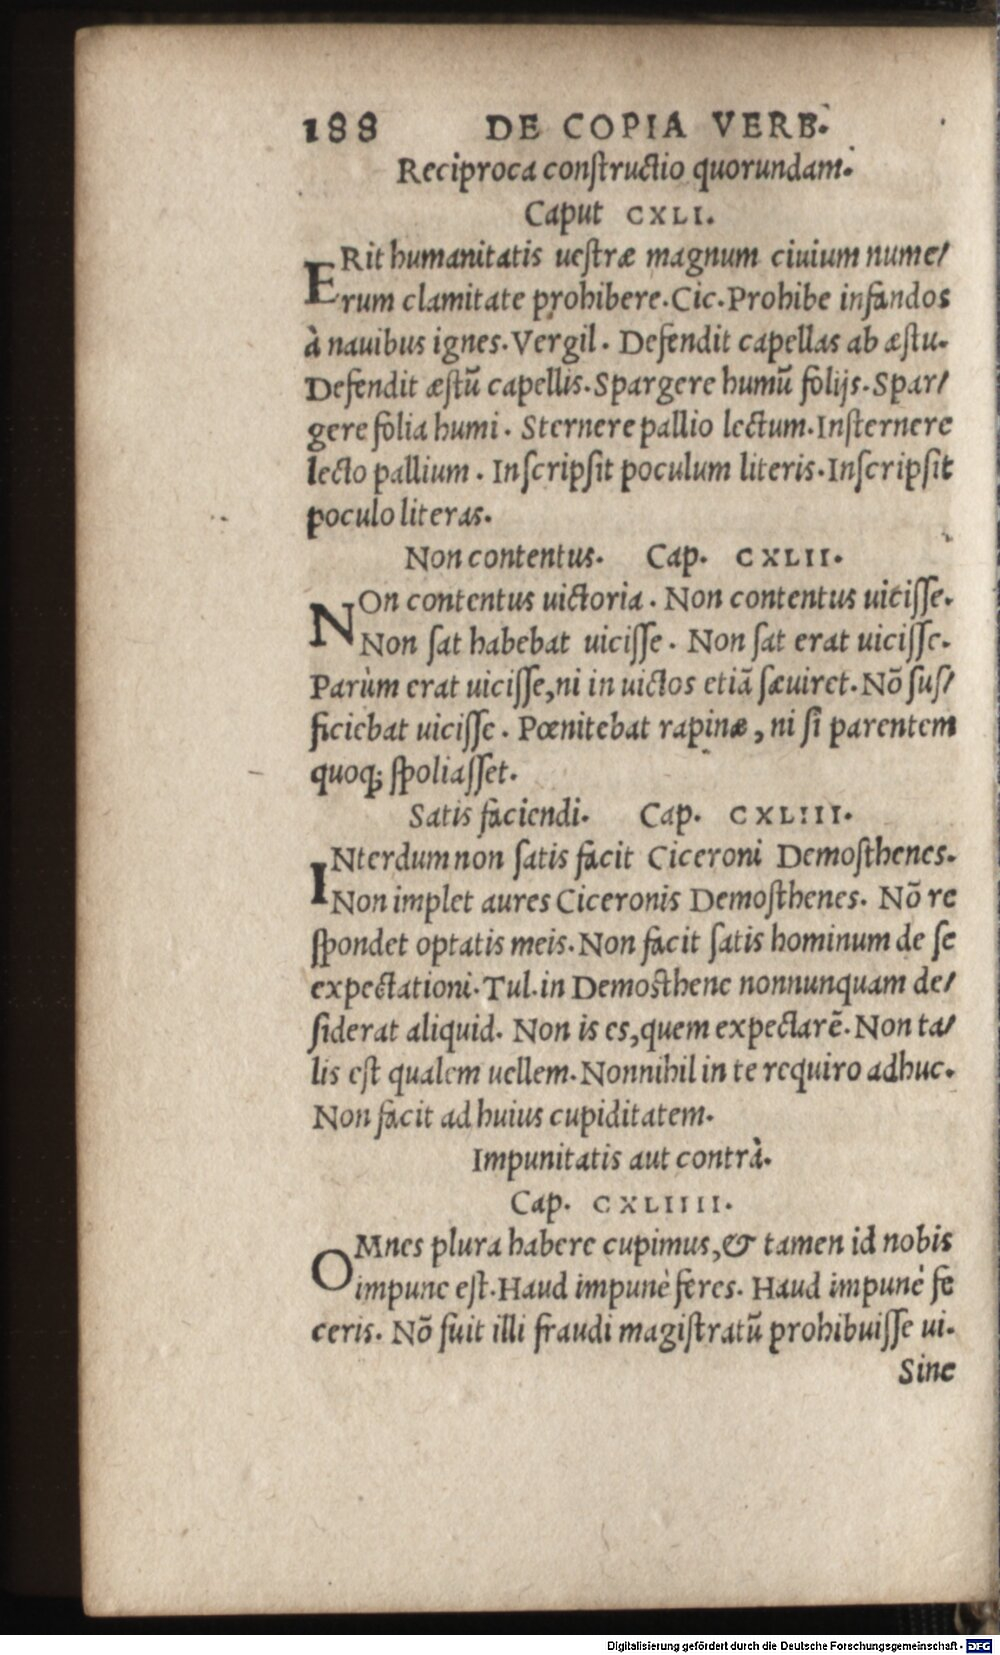 188 DE COPIA VERB.
Reciproca conſtructio quorundam.
Caput CXLI.
ERit humanitatis ueſtræ magnum ciuium nume/
rum clamitate prohibere. Cic. Prohibe infandos
à nauibus ignes. Vergil. Defendit capellas ab æſtu.
Defendit æſtũ capellis. Spargere humũ folijs. Spar/
gere folia humi. Sternere pallio lectum. Inſternere
lecto pallium. Inſcripſit poculum literis. Inſcripſit
poculo literas.
Non contentus. Cap. CXLII.
NOn contentus uictoria. Non contentus uiciſſe.
Non ſat habebat uiciſſe. Non ſat erat uiciſſe.
Parùm erat uiciſſe, ni in uictos etiã ſæuiret. Nõ ſuf/
ficiebat uiciſſe. Pœnitebat rapinæ, ni ſi parentem
quoq; ſpoliaſſet.
Satis faciendi. Cap. CXLIII.
INterdum non ſatis facit Ciceroni Demoſthenes.
Non implet aures Ciceronis Demoſthenes. Nõ re
ſpondet optatis meis. Non facit ſatis hominum de ſe
expectationi. Tul. in Demoſthene nonnunquam de/
ſiderat aliquid. Non is es, quem expectarẽ. Non ta/
lis eſt qualem uellem. Nonnihil in te requiro adhuc.
Non facit ad huius cupiditatem.
Impunitatis aut contrà.
Cap. CXLIIII.
OMnes plura habere cupimus, & tamen id nobis
impune eſt. Haud impunè feres. Haud impunè fe
ceris. Nõ fuit illi fraudi magiſtratũ prohibuiſſe ui.
Sine
Digitalisierung gefördert durch die Deutsche Forschungsgemeinschaft - DFG